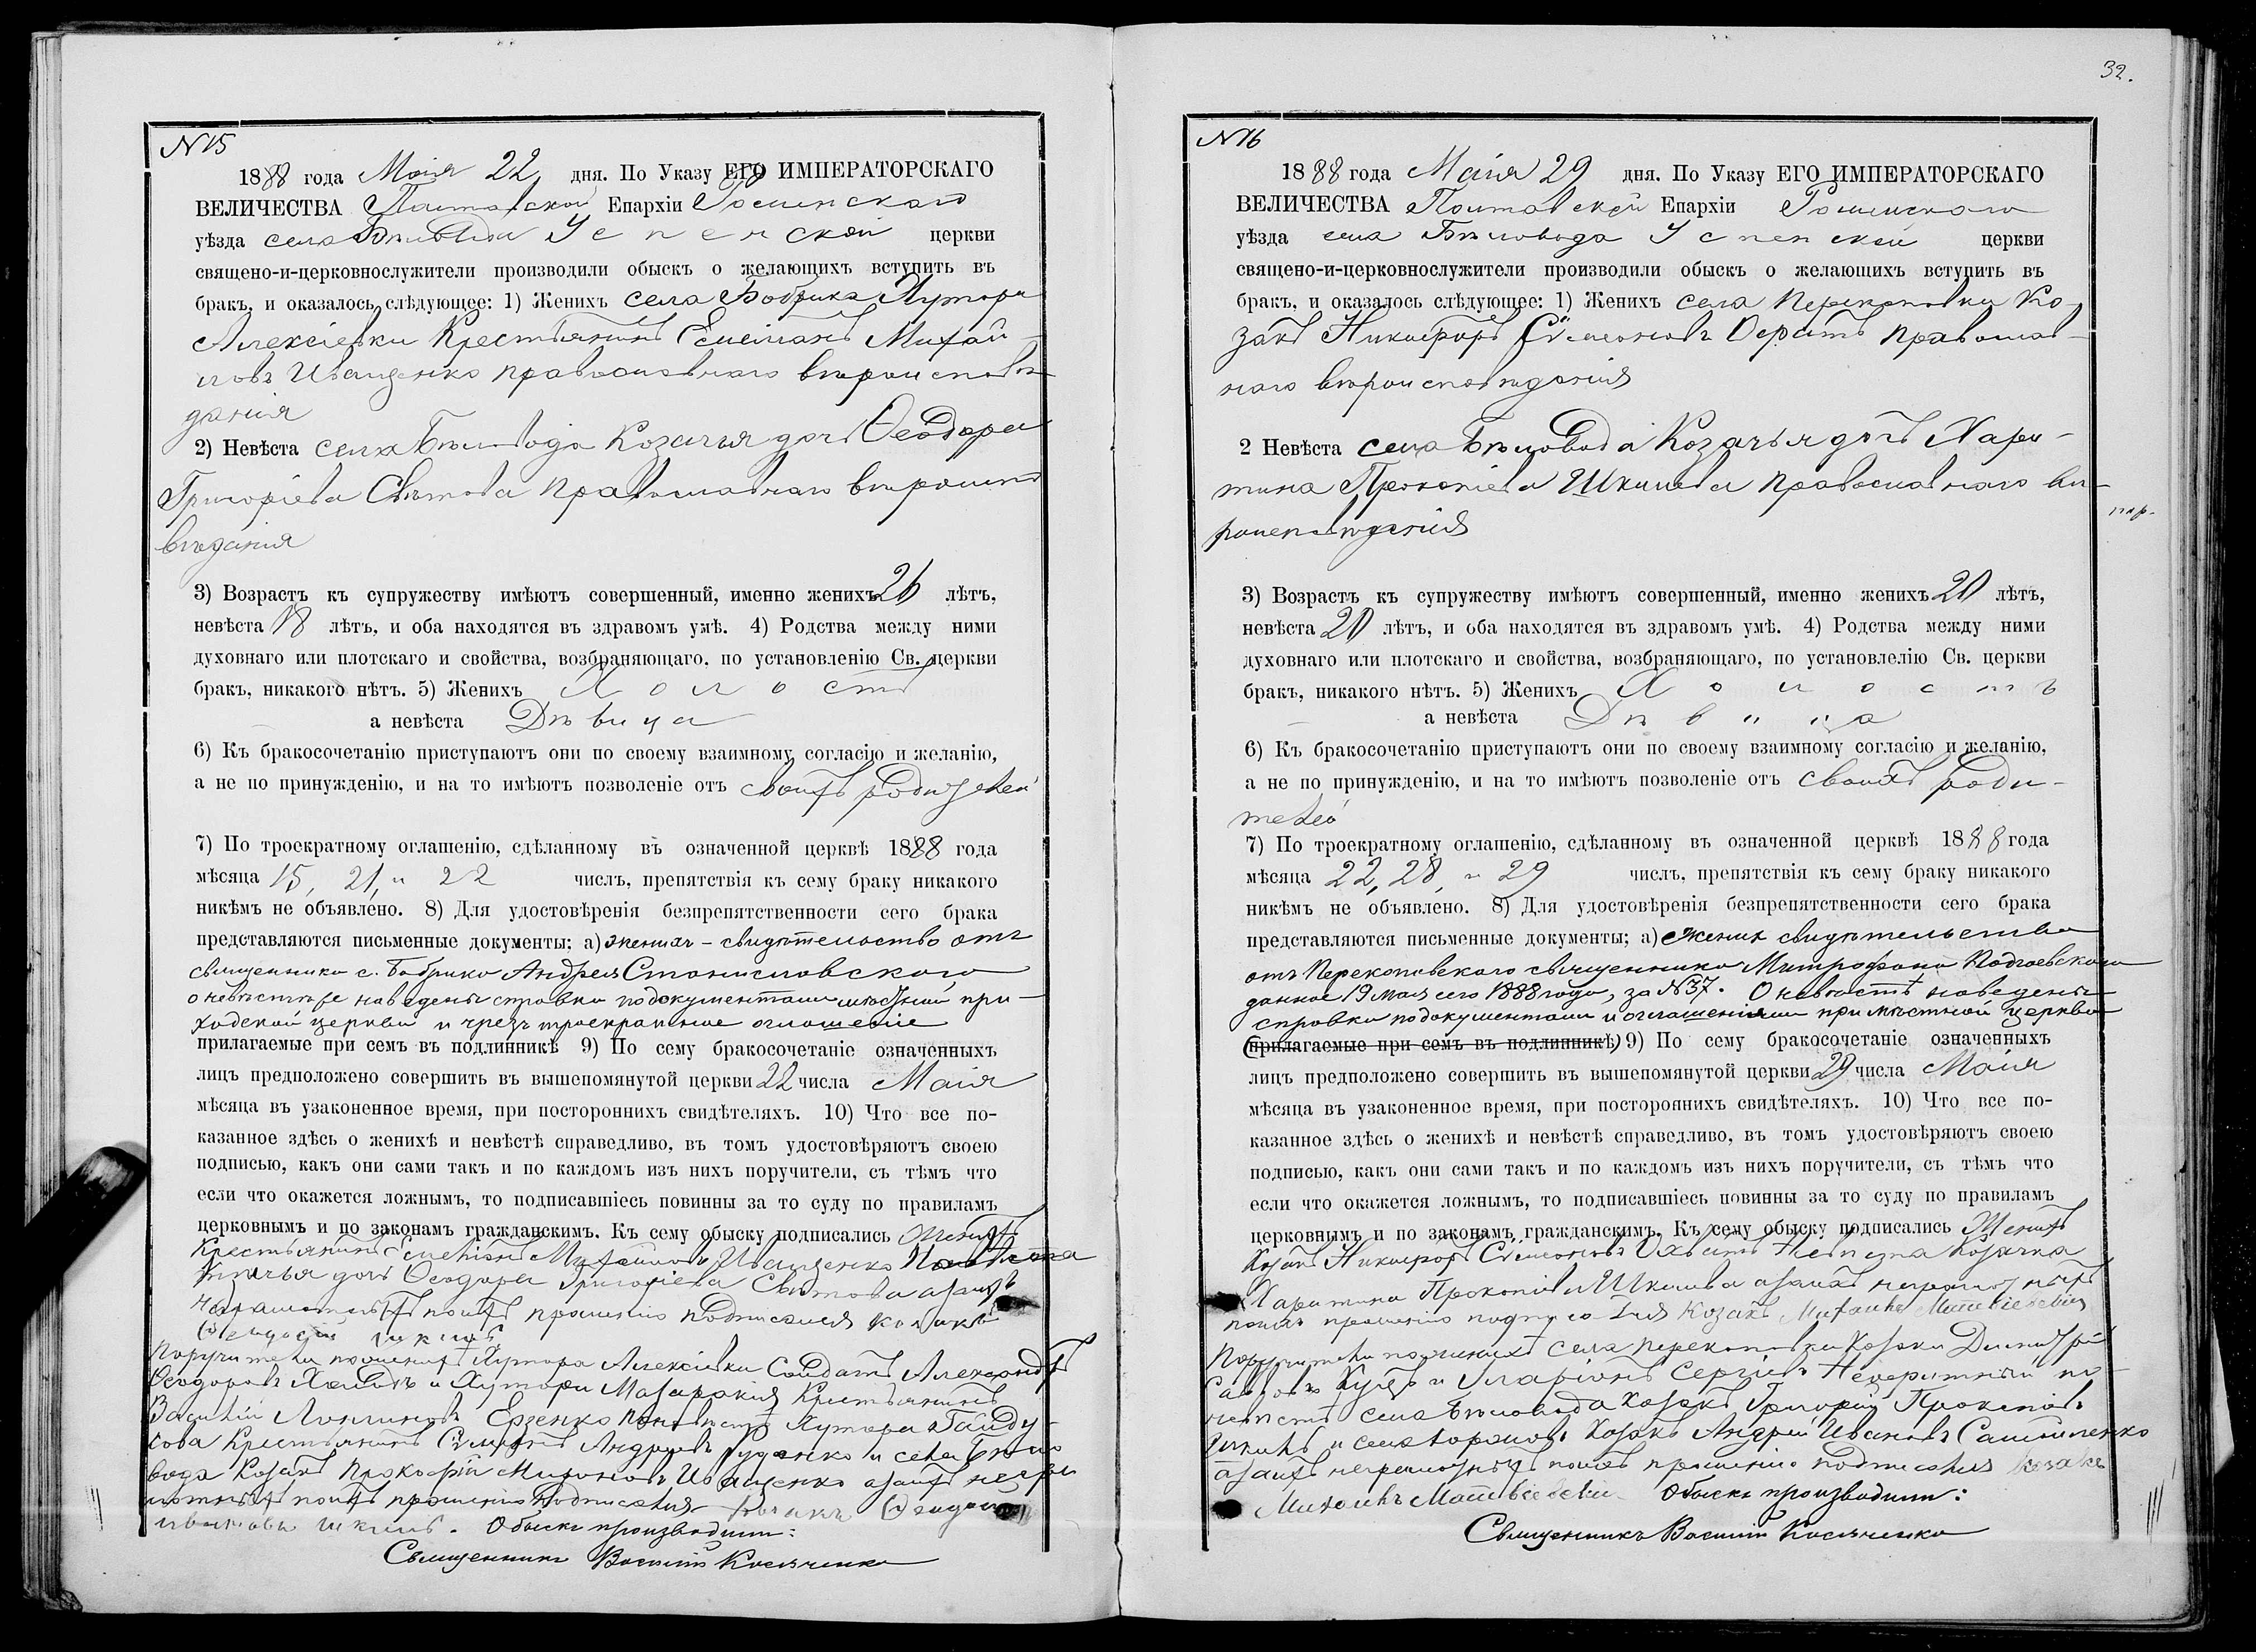 32.
N 15
1888 года Маія 22 дня. По Указу ЕГО ИМПЕРАТОРСКАГО
ВЕЛИЧЕСТВА Полтавской Епархіи Роменскаго
уѣзда села Бѣловода Успенской церкви
священо-и-церковнослужители производили обыскъ о желающихъ вступить въ
бракъ, и оказалось слѣдующее: 1) Женихъ села Бобрика Хутора
Алексіевки Крестьянинъ Емеліанъ Михай-
ловъ Иващенко православнаго вѣроисповѣ
данія
2) Невѣста села Бѣловода Козачья дочь Ѳеодора
Григоріева Свѣтова православнаго вѣроиспо
вѣданія
3) Возрастъ къ супружеству имѣютъ совершенный, именно женихъ 26 лѣтъ,
невѣста 18 лѣтъ, и оба находятся въ здравомъ умѣ. 4) Родства между ними
духовнаго или плотскаго и свойства, возбраняющаго. по установленію Св. церкви
бракъ, никакого нѣтъ. 5) Женихъ Холостъ
а невѣста Дѣвица
6) Къ бракосочетанію приступаютъ они по своему взаимному согласію и желанію,
а не по принужденію, и на то имѣютъ позволеніе отъ своихъ родителей
7) По троекратному оглашенію, сдѣланному въ означенной церквѣ 1888 года
мѣсяца 15, 21, и 22 числъ, препятствія къ сему браку никакого
никѣмъ не объявлено. 8) Для удостовѣренія безпрепятственности сего брака
представляются письменные документы: а) женихъ - свидѣтельство отъ
священника с. Бобрика Андрея Станиславского
о невѣстѣ же наведены справки по документамъ мѣстной при-
ходской церкви и чрезъ троекратное оглашеніе
прилагаемые при семъ въ подлинникѣ 9) По сему бракосочетаніе означенныхъ
лицъ предположено совершить въ вышепомянутой церкви 22 числа Маія
мѣсяца въ узаконенное время, при постороннихъ свидѣтеляхъ. 10) Что все по-
казанное здѣсь о женихѣ и невѣстѣ справедливо, въ томъ удостовѣряютъ своею
подписью, какъ они сами такъ и по каждомъ изъ нихъ поручители, съ тѣмъ что
если что окажется ложнымъ, то подписавшіесь повинны за то суду по правиламъ
церковнымъ и по законамъ гражданскимъ. Къ сему обыску подписались Женихъ
Крестьянинъ Емеліанъ Михайловъ Иващенко
Козачья дочь Ѳеодора Григоріева Свѣтова а за ихъ
неграмотныхъ по ихъ прошенію подписался козакъ
Поручители по женихѣ Хутора Алексіевки Солдатъ Александръ
Ѳеодоровъ и Хутора Мазаракія Крестьянинъ
Василій Логиновъ Ерзенко по невѣстѣ Хутора Гайду
кова Крестьянинъ Симеонъ Андреевъ Руденко и села Бѣло
вода Козакъ Прокофій Мироновъ Иващенко а за ихъ негра
мотныхъ по ихъ прошенію подписался козакъ
Обыскъ производилъ:
Священникъ Василій Косяченко
N 16
1888 года Маія 29 дня. По Указу ЕГО ИМПЕРАТОРСКАГО
ВЕЛИЧЕСТВА Полтавской Епархіи Роменскаго
уѣзда села Бѣловода Успенской церкви
священо-и-церковнослужители производили обыскъ о желающихъ вступить въ
бракъ, и оказалось слѣдующее: 1) Женихъ села Перекоповки Ко-
закъ Никифоръ Симеоновъ православ-
наго вѣроисповѣданія
2 Невѣста села Бѣловода Козачья дочь Хари-
тина Прокопіева Шкилева православнаго вѣ-
роисповѣданія
3) Возрастъ къ супружеству имѣютъ совершенный, именно женихъ 20 лѣтъ,
невѣста 20 лѣтъ, и оба находятся въ здравомъ умѣ. 4) Родства между ними
духовнаго или плотскаго и свойства, возбраняющаго, по установлелію Св. церкви
бракъ, никакого нѣтъ. 5) Женихъ Холостъ
а невѣста Дѣвица
6) Къ бракосочетанію приступаютъ они по своему взаимному согласію и желанію,
а не по принужденію, и на то имѣютъ позволеніе отъ своихъ роди-
телей
7) По троекратному оглашенію, сдѣланному въ означенной церквѣ 1888 года
мѣсяца 22, 28, и 29 числъ, препятствія къ сему браку никакого
никѣмъ не объявлено. 8) Для удостовѣренія безпрепятственности сего брака
представляются письменные документы; а) женихъ свидѣтельство
отъ Перекоповскаго священника Митрофана Подгаевскаго
данное 19 Мая сего 1888 года, за N 37. О невѣстѣ наведены
справки по документамъ и оглашеніями при мѣстной церкви
(прилагаемые при семъ въ подлинникѣ) 9) По сему бракосочетаніе означенныхъ
лицъ предположено совершить въ вышепомянутой церкви 29 числа Маія
мѣсяца въ узаконенное время, при постороннихъ свидѣтеляхъ. 10) Что все по-
казанное здѣсь о женихѣ и невѣстѣ справедливо, въ томъ удостовѣряютъ своею
подписью, какъ они сами такъ и по каждомъ изъ нихъ поручители, съ тѣмъ что
если что окажется ложнымъ, то подписавшіесь повинны за то суду по правиламъ
церковнымъ и по законамъ гражданскимъ. Къ сему обыску подписались Женихъ
Козакъ Никифоръ Симеоновъ Невѣста Козачка
Харитина Прокопіева Шкилева а за ихъ неграмотныхъ
по ихъ прошенію подписался Козакъ Михаилъ
Поручители по женихѣ села Перекоповки Козаки Димитрій
Савовъ и Иларіонъ Сергіевъ по
невѣстѣ села Бѣловода Козакъ Григорій Прокопіевъ
Шкиль и села Козакъ Андрей Ивановъ Самойленко
а за ихъ неграмотныхъ по ихъ прошенію подписался Козакъ
Михаилъ Обыскъ производилъ:
Священникъ Василій Косяченко